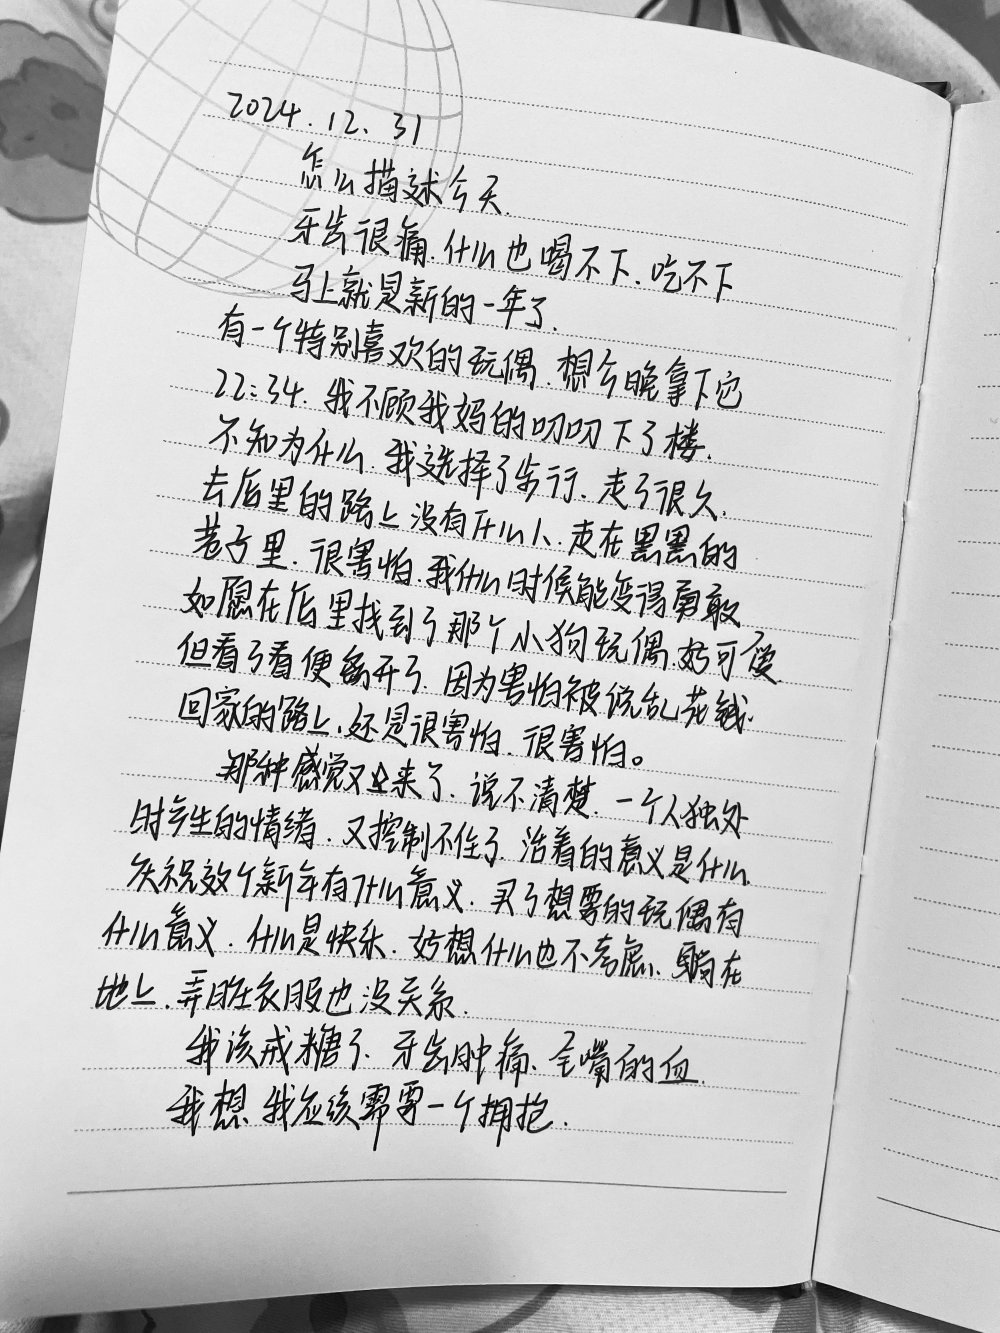 2024.12.31
怎么描述今天.
牙齿很痛.什么也喝不下.吃不下
马上就是新的一年了.
有一个特别喜欢的玩偶.想今晚拿下它
22:34.我不顾我妈的叨叨下了楼.
不知为什么.我选择了步行.走了很久.
去店里的路上没有什么人.走在黑黑的
巷子里.很害怕.我什么时候能变得勇敢
如愿在店里找到了那个小狗玩偶.好可爱
但看了看便离开了.因为害怕被说乱花钱.
回家的路上.还是很害怕.很害怕。
那种感觉又上来了.说不清楚.一个人独处
时产生的情绪.又控制不住了.活着的意义是什么.
庆祝这个新年有什么意义.买了想要的玩偶有
什么意义.什么是快乐.好想什么也不考虑.躺在
地上.弄脏衣服也没关系.
我该戒糖了.牙齿肿痛.全嘴的血.
我想我应该需要一个拥抱.